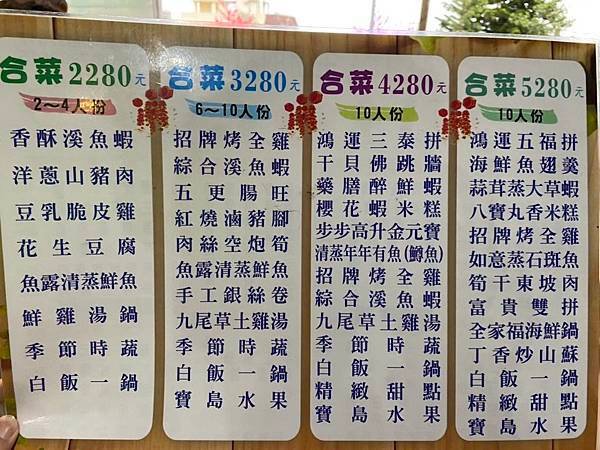 合菜2280元
2～4人份
香酥溪魚蝦
洋蔥山豬肉
豆乳脆皮雞
花生豆腐
魚露清蒸鮮魚
鮮雞湯鍋
季節時蔬
白飯一鍋
合菜3280元
6～10人份
招牌烤全雞
綜合溪魚蝦
五更腸旺
紅燒滷豬腳
肉絲空炮筍
魚露清蒸鮮魚
手工銀絲卷
九尾草土雞湯
季節時蔬
白飯一鍋
寶島水果
合菜4280元
10人份
鴻運三泰拼
干貝佛跳牆
藥膳醉鮮蝦
櫻花蝦米糕
步步高升金元寶
清蒸年年有魚(鱒魚)
招牌烤全雞
綜合溪魚蝦
九尾草土雞湯
季節時蔬
白飯一鍋
精緻甜點
寶島水果
合菜5280元
10人份
鴻運五福拼
海鮮魚翅羹
蒜茸蒸大草蝦
八寶丸香米糕
招牌烤全雞
如意蒸石斑魚
筍干東坡肉
富貴雙拼
全家福海鮮鍋
丁香炒山蘇
白飯一鍋
精緻甜點
寶島水果